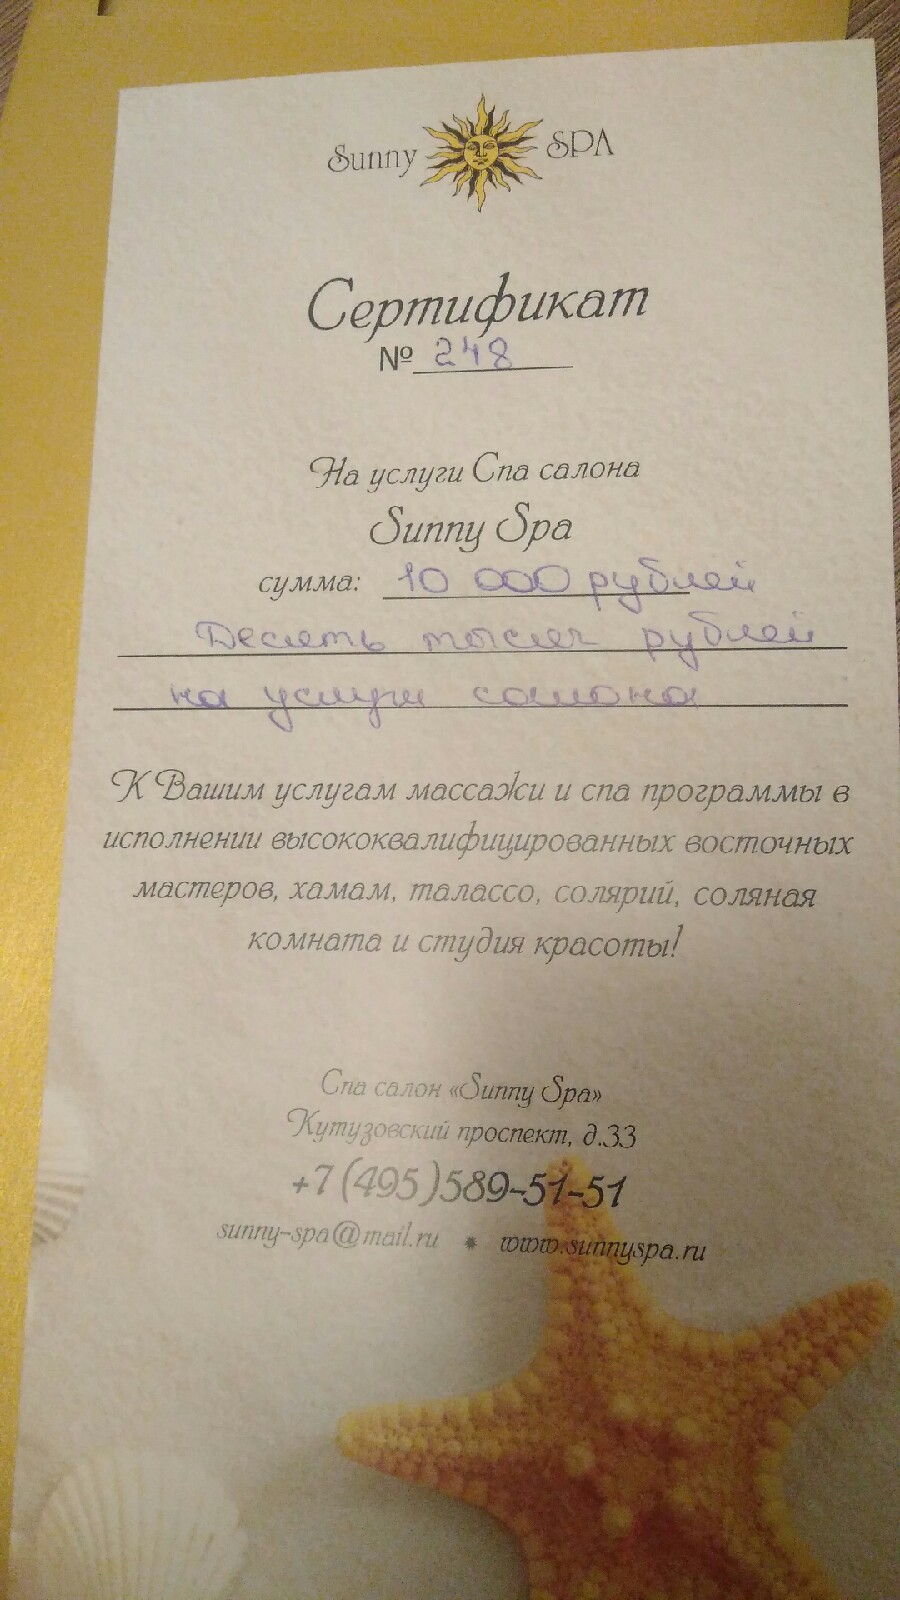 Sunny SPA
Сертификат
№ 248
На услуги Спа салона
Sunny Spa
сумма: 10 000 рублей
Десять тысяч рублей
на услуги салона
К Вашим услугам массажи и спа программы в
исполнении высококвалифицированных восточных
мастеров, хамам, талассо, солярий, соляная
комната и студия красоты!
Спа салон «Sunny Spa»
Кутузовский проспект, д.33
+7(495)589-51-51
sunny-spa@mail.ru * www.sunnyspa.ru